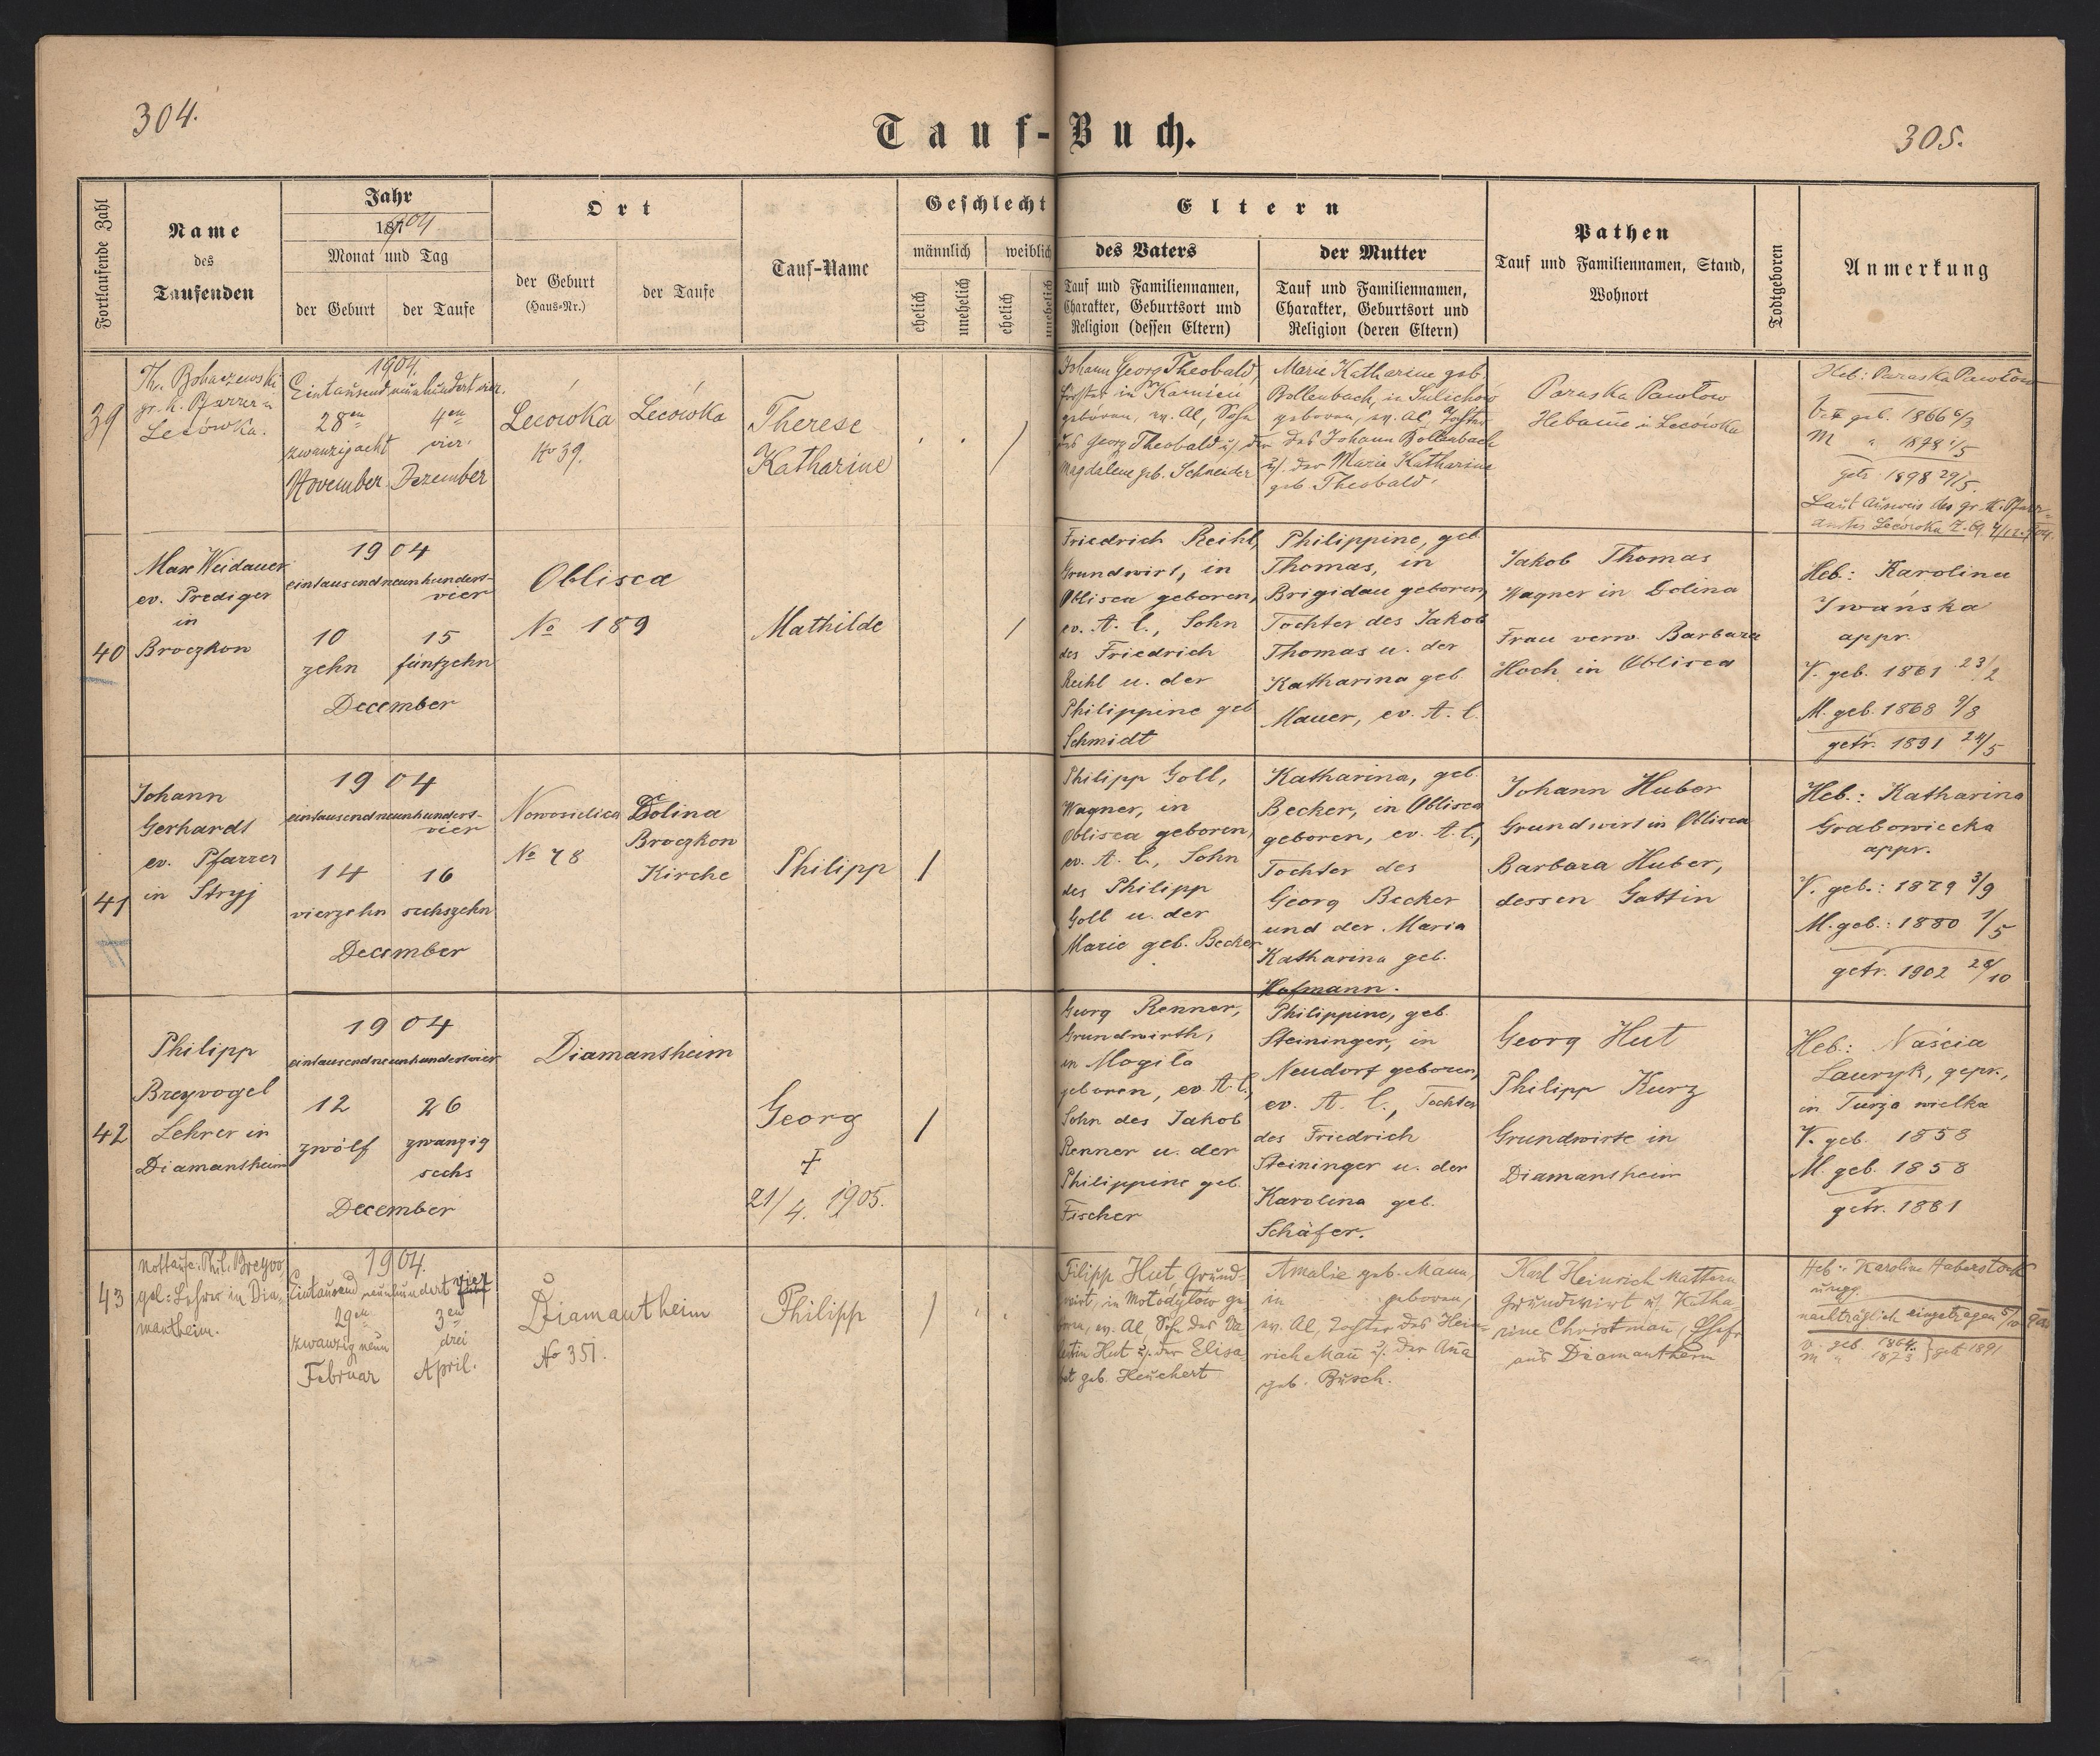 304.
Tauf-Buch.
305.
Fortlaufende Zahl
Name
des
Taufenden
Jahr
187 1904
Monat und Tag
der Geburt
der Taufe
Ort
der Geburt
(Haus-Nr.)
der Taufe
Tauf-Name
Geschlecht
männlich
weiblich
ehelich
unehelich
ehelich
unehelich
Eltern
des Vaters
Tauf und Familiennamen,
Charakter, Geburtsort und
Religion (dessen Eltern)
der Mutter
Tauf und Familiennamen,
Charakter, Geburtsort und
Religion (deren Eltern)
Pathen
Tauf und Familiennamen, Stand,
Wohnort
Todtgeboren
Anmerkung
39
Th. Bohaczewski
gr. k. Pfarrer in
Lecówka.
1904.
Eintausendneunhundert vier.
28en
4en
zwanzigacht
vier.
November
Dezember
Lecówka
No 39.
Lecówka
Therese
Katharine
Johann Georg Theobald,
Förster in
geboren, ev. Al, Sohn
des Georg Theobald u. der
Magdalene geb. Schneider
Marie Katharine geb.
Bollenbach, in Sulichów
geboren, ev. Al, Tochter
des Johann Bollenbach
u. der Marie Katharine
geb. Theobald.
Paraska Pawłow
Hebamme in Lecówka
Heb: Paraska Pawłow
V. geb. 1866 6/3
M " 1878 1/5
getr. 1898 29/5.
Laut Ausweis des gr. k. Pfarr-
amtes Lecówka Z. 69
40
Max Weidauer
ev. Prediger
in
Broczkon
1904
eintausendneunhundert-
vier
10
15
zehn
fünfzehn
December
Oblisca
No 189
Mathilde
Friedrich Reihl,
Grundwirt, in
Oblisca geboren,
ev. A. C., Sohn
des Friedrich
Reihl u. der
Philippine geb
Schmidt
Philippine, geb
Thomas, in
Brigidau geboren,
Tochter des Jakob
Thomas u. der
Katharina geb
Mauer, ev. A. C.
Jakob Thomas
Wagner in Dolina
Frau verw. Barbara
Hoch in Oblisca
Heb.: Karolina
Iwańska
appr.
V. geb. 1861 23/2
M. geb. 1868 9/8
getr. 1891 24/5
41
Johann
Gerhardt
ev. Pfarrer
in Stryj
1904
eintausendneunhundert-
vier
14
16
vierzehn
sechszehn
December
Nowosielica
No 78
Dolina
Broczkon
Kirche
Philipp
Philipp Goll,
Wagner, in
Oblisca geboren,
ev. A. C., Sohn
des Philipp
Goll u. der
Marie geb. Becker
Katharina, geb.
Becker, in Oblisca
geboren, ev. A. C.,
Tochter des
Georg Becker
und der Maria
Katharina geb.
Hofmann.
Johann Huber
Grundwirt in Oblisca
Barbara Huber,
dessen Gattin
Heb.: Katharina
Grabowiecka
appr.
V. geb.: 1879 3/9
M. geb.: 1880 1/5
getr. 1902 28/10
42
Philipp
Breyvogel
Lehrer in
Diamantheim
1904
eintausendneunhundertvier
12
26
zwölf
zwanzig
sechs
December
Diamantheim
Georg
+
21/4. 1905.
Georg Renner,
Grundwirth,
in Mogila
geboren, ev A. C.,
Sohn des Jakob
Renner u. der
Philippine geb.
Fischer
Philippine, geb.
Steininger, in
Neudorf geboren,
ev. A. C., Tochter
des Friedrich
Steininger u. der
Karolina geb.
Schäfer.
Georg Hut
Philipp Kurz
Grundwirte in
Diamantheim
Heb.: Naścia
Lauryk, gepr.,
in Turza wielka
V. geb. 1858
M. geb. 1858
getr. 1881
43
Nottaufe: Phil. Breyvo-
gel: Lehrer in Dia-
mantheim.
1904.
Eintausend neunhundert vier
29en
3en
zwanzig neun
drei
Februar
April.
Diamantheim
No 351.
Philipp
Filipp Hut, Grund-
wirt, in Mołodyłow ge-
boren, ev. Al Sohn des Va-
lentin Hut u. der Elisa-
bet geb. Heuchert
Amalie geb. Mann,
in geboren,
ev. Al, Tochter des Hein-
rich Mann u. der Anna
geb. Busch.
Karl Heinrich Mattern
Grundwirt u. Katha-
rine Christmann, Ehefr
aus Diamantheim
Heb: Karoline Haberstock
ungepr.
nachträglich eingetragen
V. geb. 1864.
M " 1873 } getr 1891